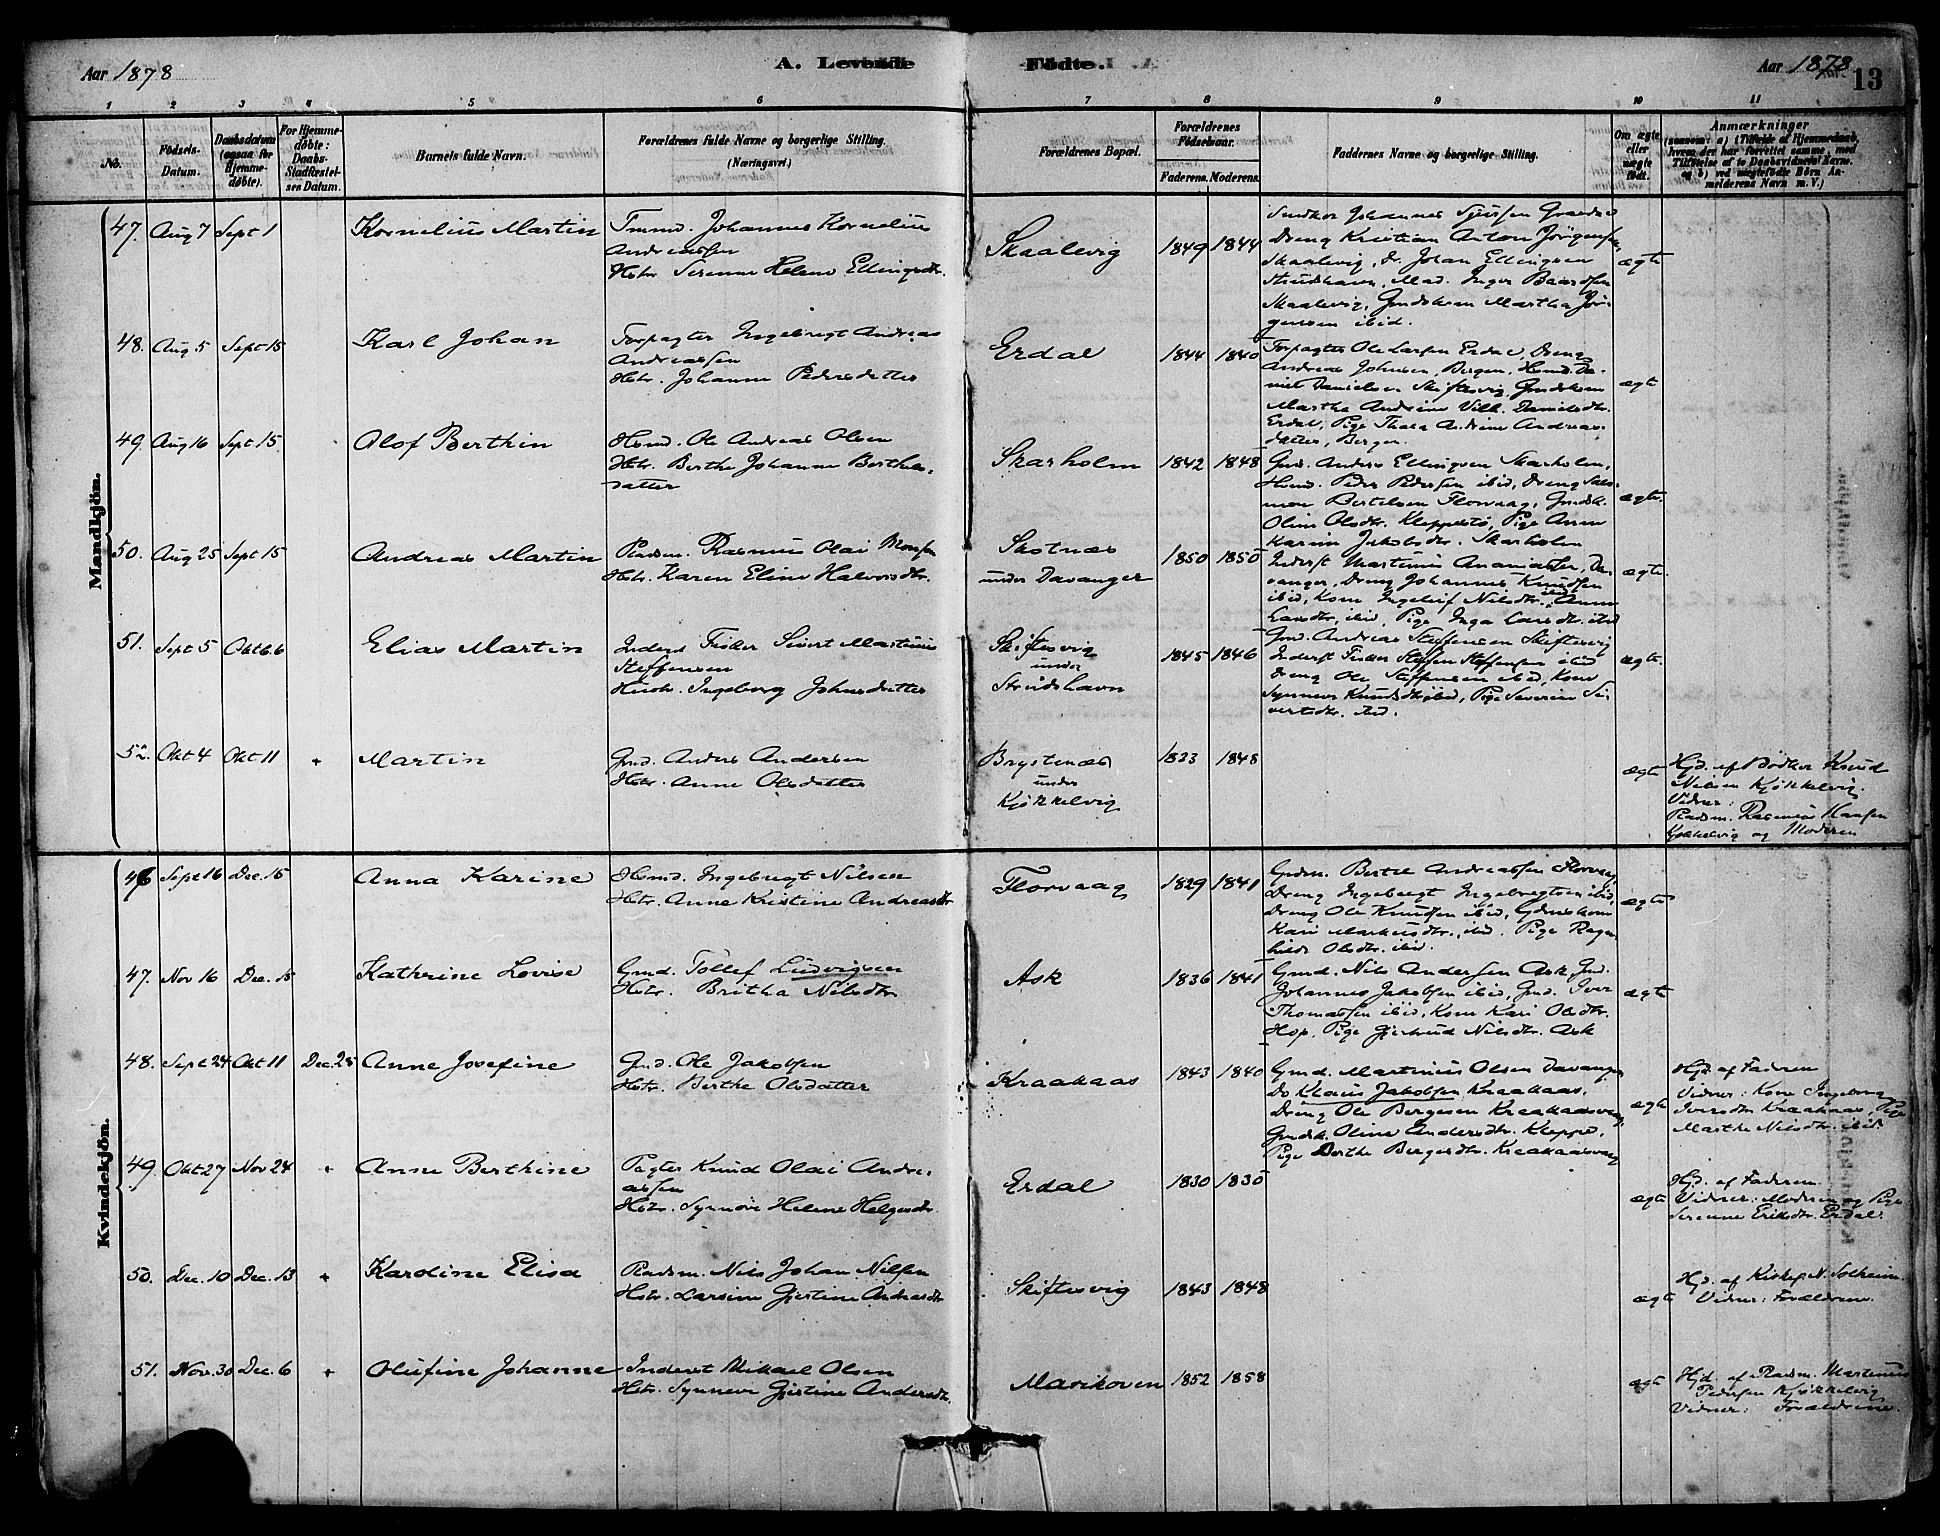 Aar 1878
A. Levende Födte.
Aar 1878
13
1 2 3 4 5 6 7 8 9 10 11
No.
Födsels-
Datum.
Daabsdatum
(ogsaa for
Hjemme-
döbte).
For Hjemme-
döbte:
Daabs-
Stadfæstel-
ses Datum.
Barnets fulde Navn.
Forældrenes fulde Navne og borgerlige Stilling.
(Næringsvei.)
Forældrenes Bopæl.
Forældrenes
Födselsaar.
Faderens. Moderens.
Faddernes Navne og borgerlige Stilling.
Om ægte
eller
uægte
födt.
Anmærkninger
(saasom: a) i Tilfælde af Hjemmedaab,
hvem der har forrettet samme, med
Tilföielse af to Daabsvidners Navne,
og b) ved uægtefödte Börn An-
melderens Navn m. V.)
Mandkjön.
47. Aug 7 Sept 1 Kornelius Martin
Tmmd. Johannes Kornelius
Andreassen
Hstr. Serenne Helene Ellingsdtr.
Skaalevig 1849 1844
Dreng Kristian Anton Jörgensen
Skaalevig, Dr. Johan Ellingsen
Strudshavn, Mad. Inger Baardsen
Skaalevig, Gmdskone Martha Jör-
gensen ibid.
ægte
48. Aug 5 Sept 15 Karl Johan
Forpagter Ingebrigt Andreas
Andreassen
Hstr. Johanne Pedersdatter
Erdal 1844 1840
Forpagter Ole Larsen Erdal, Dreng
Andreas Johnsen, Bergen, Hsmd. Da-
niel Danielsen Skiftesvig, Gmdskone
Martha Andrine Vilh. Danielsdtr.
Erdal, Pige Thala Andrine Andreas-
datter, Bergen.
ægte
49. Aug 16 Sept 15. Olof Berthin
Hsmd. Ole Andreas Olsen
Hstr. Berthe Johanne Berthels-
datter
Skarholm 1842 1848
Gmd. Anders Ellingsen Skarholm,
Hsmd. Peder Pedersen ibid, Dreng Salo-
mon Bertelsen Florvaag, Gmdsk.
Oline Olsdtr. Kleppestö, Pige Anne
Karine Jakobsdtr. Skarholm
ægte.
50. Aug 25 Sept 15 Andreas Martin
Pladsm. Rasmus Olai Monsen
Hstr. Karen Eline Halvorsdtr.
Skotnæs
under Davanger
1850 1850
Inderst Martinus Davanger, Dreng Johannes Knudsen
ibid, Kone Ingeleif Nilsdtr. ibid, Anne
Larsdtr. ibid, Pige Inga Larsdtr. ibid
ægte.
51. Sept 5 Okt 6 Elias Martin
Inderst Fisker Sivert Martinus
Steffensen
Hustr. Ingeborg Johnsdatter
Skiftesvig
under
Strudshavn
1845 1846
Gmd. Andreas Steffensen Skiftesvig
Inderst Fisker Steffen Steffensen ibid
Dreng Ole Steffensen ibid, Kone
Synneve Knudsdtr. ibid, Pige Severine Si-
vertsdtr. ibid.
ægte.
52. Okt 4 Okt 11 + Martin
Gmd. Anders Andersen
Hstr. Anne Olsdatter
Brystenæs
under
Kjökkelvig
1833 1848
ægte
Hjd. af Bödker Knud
Nilsen Kjökkelvig.
Vidner:
Pladsm. Rasmus Hansen
Kjøkkelvig og Moderen
Kvindekjön.
46 Sept 16 Dec. 15 Anna Karine
Hsmd. Ingebrigt Nilsen
Hstr. Anne Kristine Andreasdtr
Florvaag 1829 1841
Gmdm. Bertel Andreassen Florvaag
Dreng Ingebrigt Ingebrigtsen ibid,
Dreng Ole Knudsen ibid, Gmdskone
Kari Markusdtr. ibid. Pige Ragn-
hilde Olsdtr. ibid.
ægte
47. Nov 16 Dec. 15 Kathrine Lovise
Gmd. Tollef Ludvigsen
Hstr. Britha Nilsdtr
Ask 1836 1841
Gmd. Nils Andersen Ask, Gmd.
Johannes Jakobsen ibid, Gmd. Iver
Thomassen ibid, Kone Kari Olsdtr.
Hop, Pige Gjertrud Nilsdtr. Ask
ægte
48. Sept 24 Okt 11 Dec. 25 Anne Josefine
Gmd. Ole Jakobsen
Hstr. Berthe Olsdatter
Kraakaas 1843 1840
Gmd. Martinus Olsen Davanger
Do Klaus Jakobsen Kraakaas,
Dreng Ole Bergesen Kraakaasvaag
Gmdsk. Oline Andersdtr. Kleppe,
Pige Berthe Bergesdtr. Kraakaasvaag
ægte
Hjd. af Faderen
Vidner: Kone Ingeborg
Iversdtr Kraakaas, Pige
Marthe Nilsdtr. ibid.
49. Okt 27 Nov 24 + Anne Berthine
Pagter Knud Olai Andre-
assen
Hstr. Synnöve Helene Helgesdtr.
Erdal 1830 1835
ægte
Hjd. af Faderen.
Vidner: Moderen og Pige
Serenne Eriksdtr. Erdal.
50. Dec. 10 Dec. 13 + Karoline Elisa
Pladsm. Nils Johan Nilsen
Hstr. Larsine Gjertine Andreasdtr
Skiftesvig 1843 1848
ægte
Hjd. af Kirkes. N. Solheim.
Vidner: Forældrene.
51. Nov. 30 Dec. 6 + Olufine Johanne
Inderst Mikael Olsen
Hstr. Synneve Gjertine Andersdtr.
Marikoven 1852 1858
ægte
Hjd. af Pladsm. Martinus
Pedersen Kjökkelvig
Vidner: Forældrene.